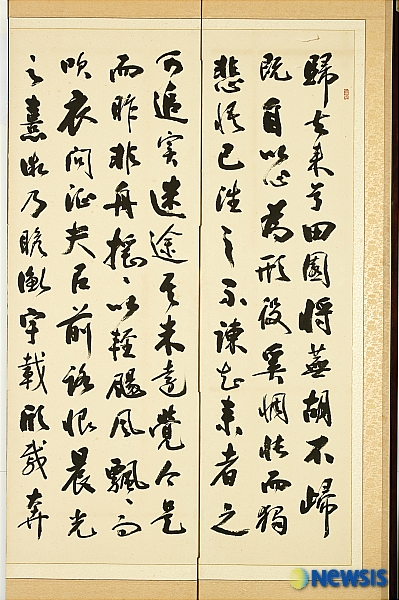 歸去来兮田園將蕪胡不歸
既自以心為形役奚惆悵而獨
悲悟已往之不諫知来者之
可追實迷途其未遠覺今是
而昨非舟摇〻以輕颺風飄〻而
吹衣問征夫以前路恨晨光
之熹微乃瞻衡宇載欣載奔
NEWSIS